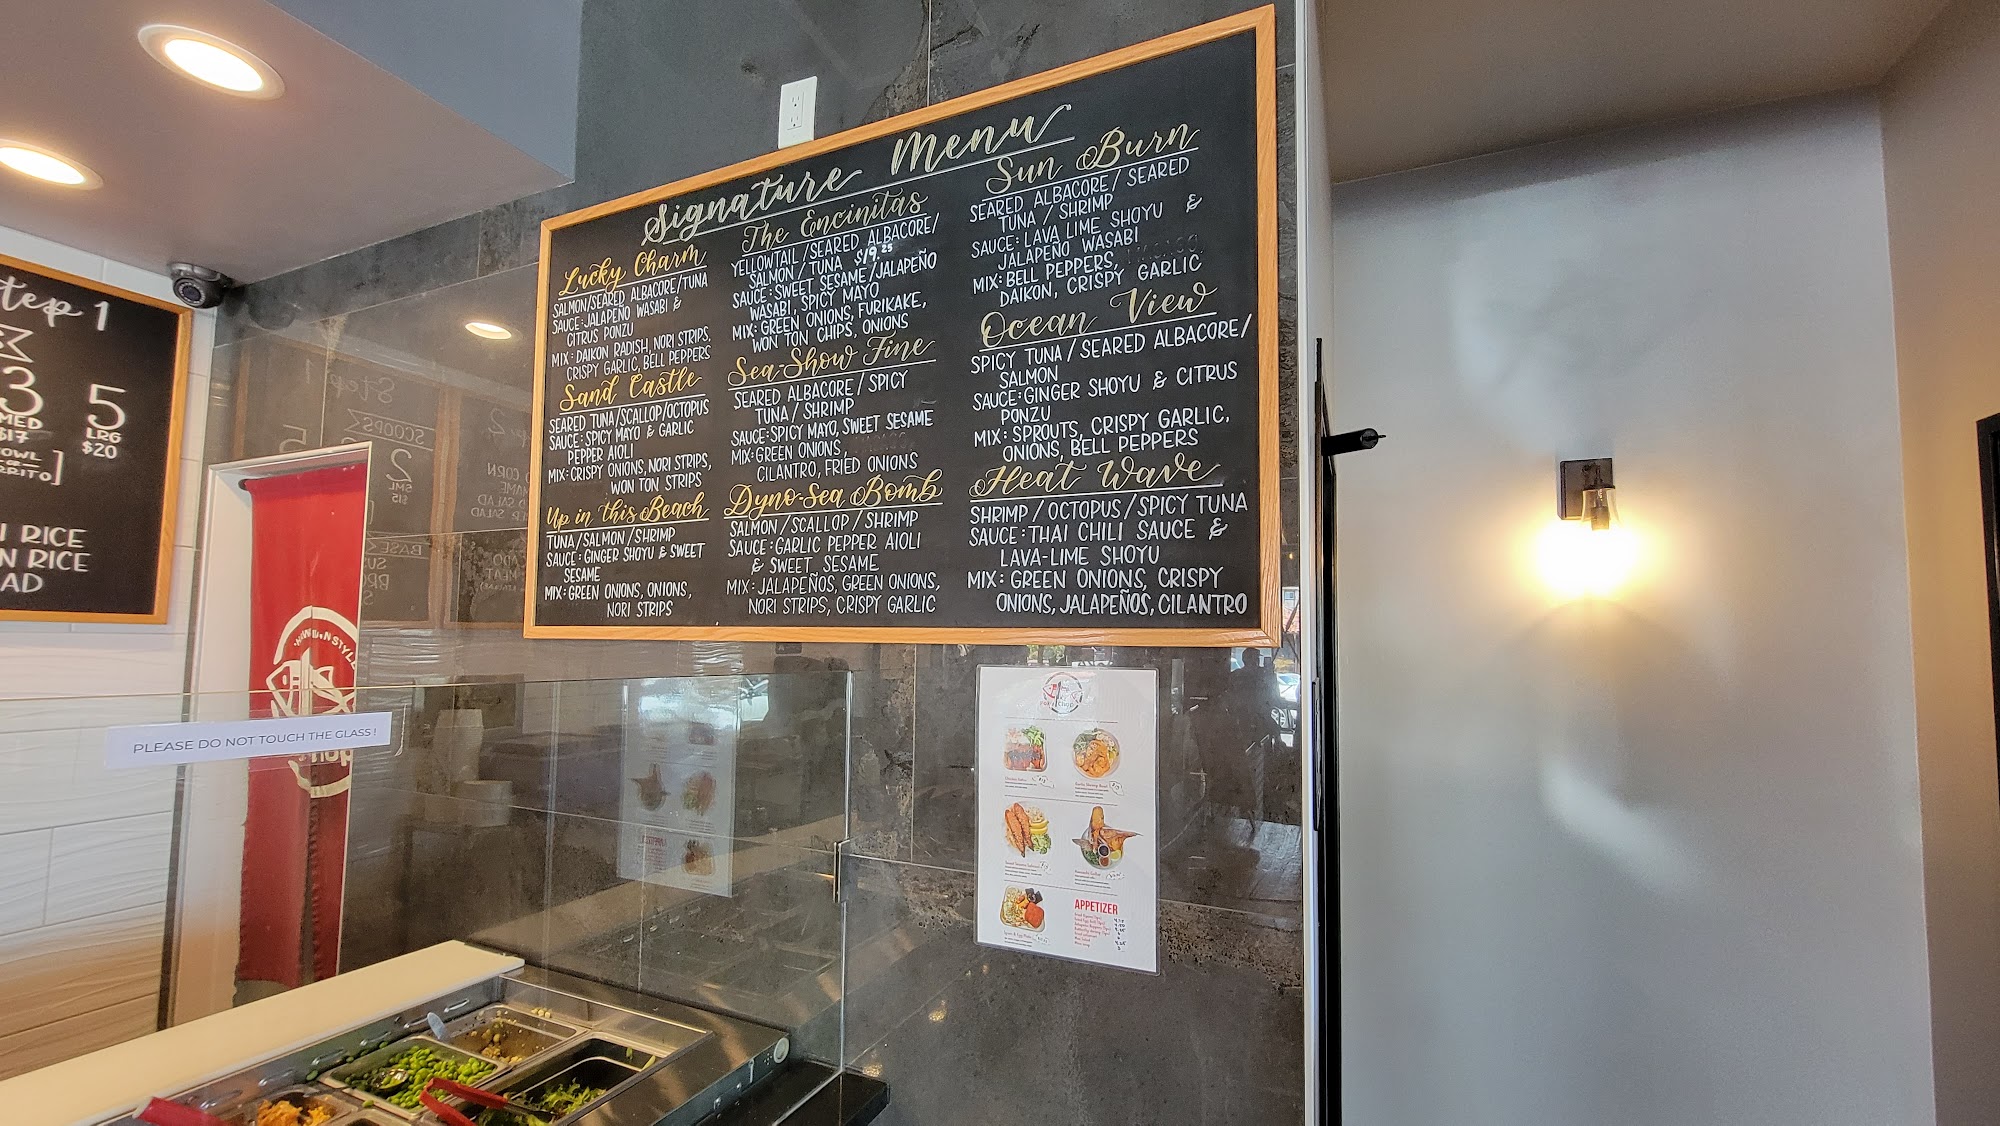 Step 1
3
MED
$17
5
LRG
$20
RICE
RICE
Signature Menu
Lucky Charm
SALMON/SEARED ALBACORE/TUNA
SAUCE: JALAPEÑO WASABI &
CITRUS PONZU
MIX: DAIKON RADISH, NORI STRIPS,
CRISPY GARLIC, BELL PEPPERS
Sand Castle
SEARED TUNA/SCALLOP/OCTOPUS
SAUCE: SPICY MAYO & GARLIC
PEPPER AIOLI
MIX: CRISPY ONIONS, NORI STRIPS,
WON TON STRIPS
Up in this Beach
TUNA/SALMON/SHRIMP
SAUCE: GINGER SHOYU & SWEET
SESAME
MIX: GREEN ONIONS, ONIONS,
NORI STRIPS
The Encinitas
YELLOWTAIL/SEARED ALBACORE/
SALMON/TUNA $19.25
SAUCE: SWEET SESAME/JALAPEÑO
WASABI, SPICY MAYO
MIX: GREEN ONIONS, FURIKAKE,
WON TON CHIPS, ONIONS
Sea-Show Fine
SEARED ALBACORE/SPICY
TUNA/SHRIMP
SAUCE: SPICY MAYO, SWEET SESAME
MIX: GREEN ONIONS,
CILANTRO, FRIED ONIONS
Dyno-Sea Bomb
SALMON/SCALLOP/SHRIMP
SAUCE: GARLIC PEPPER AIOLI
& SWEET, SESAME
MIX: JALAPEÑOS, GREEN ONIONS,
NORI STRIPS, CRISPY GARLIC
Sun Burn
SEARED ALBACORE/SEARED
TUNA/SHRIMP
SAUCE: LAVA LIME SHOYU &
JALAPEÑO WASABI
MIX: BELL PEPPERS,
DAIKON, CRISPY GARLIC
Ocean View
SPICY TUNA/SEARED ALBACORE/
SALMON
SAUCE: GINGER SHOYU & CITRUS
PONZU
MIX: SPROUTS, CRISPY GARLIC,
ONIONS, BELL PEPPERS
Heat Wave
SHRIMP/OCTOPUS/SPICY TUNA
SAUCE: THAI CHILI SAUCE &
LAVA-LIME SHOYU
MIX: GREEN ONIONS, CRISPY
ONIONS, JALAPEÑOS, CILANTRO
PLEASE DO NOT TOUCH THE GLASS!
APPETIZER